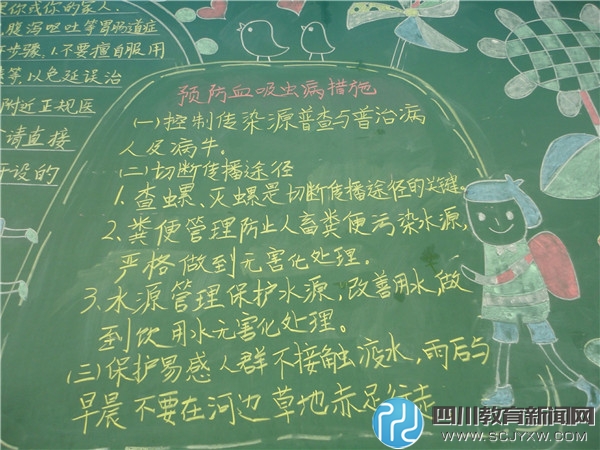 你或你的家人
腹泻呕吐等胃肠道症
步骤，1.不要擅自服用
等，以免延误治
附近正规医
请直接
开设的
预防血吸虫病措施
(一)控制传染源普查与普治病
人及病牛。
(二)切断传播途径
1.查螺、灭螺是切断传播途径的关键。
2.粪便管理防止人畜粪便污染水源，
严格做到无害化处理。
3.水源管理保护水源，改善用水，做
到饮用水无害化处理。
(三)保护易感人群不接触疫水，雨后与
早晨不要在河边草地赤足行走
四川教育新闻网
WWW.SCJYXW.COM